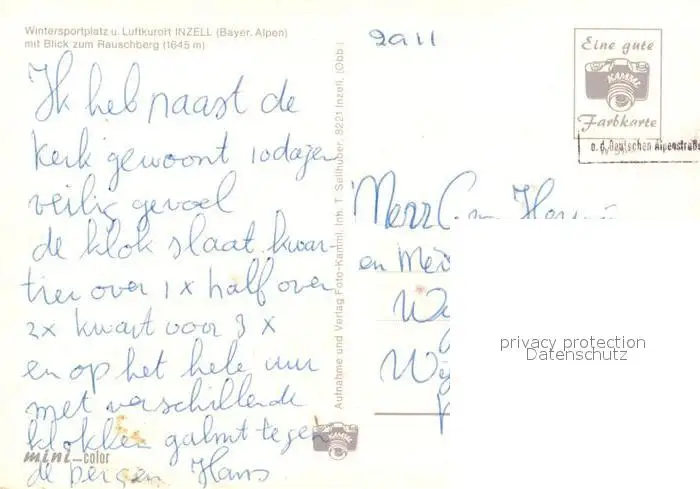 Wintersportplatz u. Luftkurort INZELL (Bayer. Alpen)
mit Blick zum Rauschberg (1645 m)
Ik heb naast de
kerk gewoont 10 dagen
veilig gevoel
de klok slaat kwar-
tier over 1 x half over
2x kwart voor 3 x
en op het hele uur
met verschillende
klokken galmt tegen
de bergen Hans
mini-color
Aufnahme und Verlag Foto-Kamml. Inh. T. Sailhuber, 8221 Inzell, (Obb.)
KAMML
2911
Eine gute
KAMML
Farbkarte
a. d. Deutschen Alpenstraße
Herr
en
privacy protection
Datenschutz